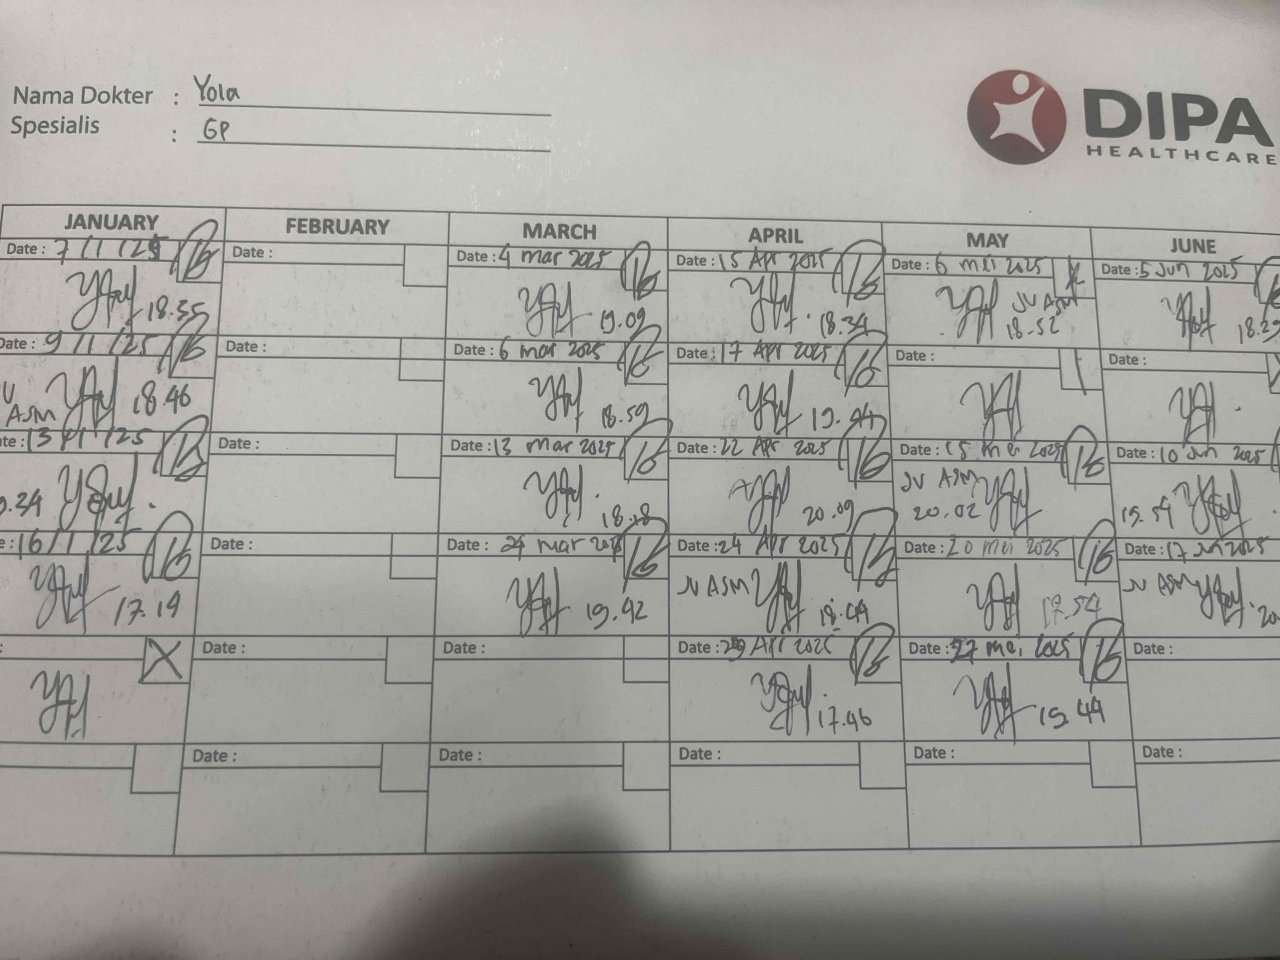 Nama Dokter : Yola
Spesialis : GP
DIPA
HEALTHCARE
JANUARY FEBRUARY MARCH APRIL MAY JUNE
Date : 7/1/25 Date : Date : 4 mar 2025 Date : 15 Apr 2025 Date : 6 mei 2025 Date : 5 Jun 2025
18.35 19.09 18.34 JV ASM 18.52 18.2
Date : 9/1/25 Date : Date : 6 mar 2025 Date : 17 Apr 2025 Date : Date :
ASM 18.46 18.59 19.44
te : 13/1/25 Date : Date : 13 mar 2025 Date : 22 Apr 2025 Date : 15 mei 2025 Date : 10 Jun 2025
.34 18.18 20.09 JV ASM 20.02 19.54
e : 16/1/25 Date : Date : 24 mar 2025 Date : 24 Apr 2025 Date : 20 mei 2025 Date : 17 Jun 2025
17.19 19.42 JV ASM 18.44 17.54 JV ASM 20
: Date : Date : Date : 29 Apr 2025 Date : 27 mei 2025 Date :
17.46 19.44
Date : Date : Date : Date : Date :